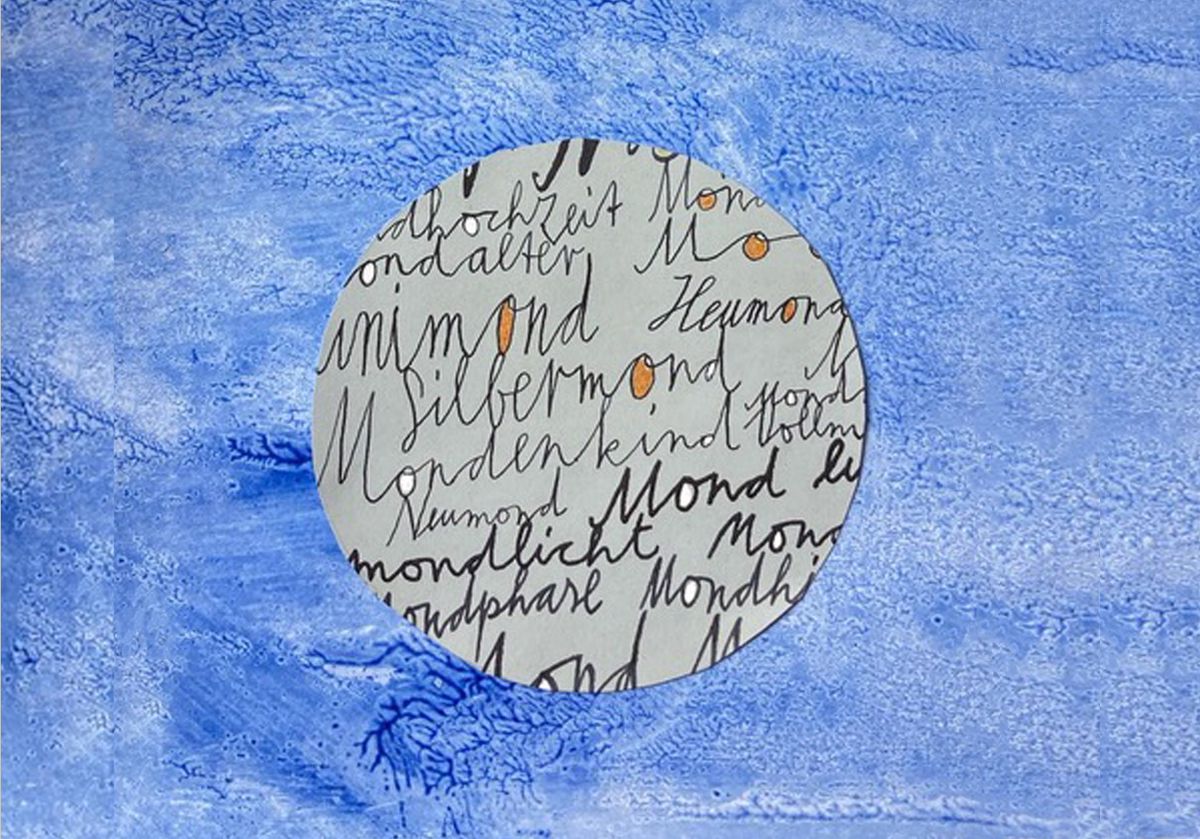 dhochzeit Mon
ondalter Mo
unimond Heumond
Silbermond M
Mondenkind Mond
Vollm
Neumond Mond li
mondlicht Mond
Mondphase Mondhi
Mond M